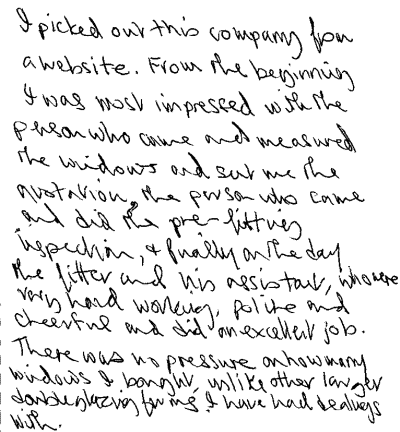 I picked out this company from
a website. From the beginning
I was most impressed with the
person who came and measured
the windows and sent me the
quotation, the person who came
and did the pre-fitting
inspection, & finally on the day
the fitter and his assistant, who were
very hard working, polite and
cheerful and did an excellent job.
There was no pressure on how many
windows I bought, unlike other larger
double glazing firms I have had dealings
with.